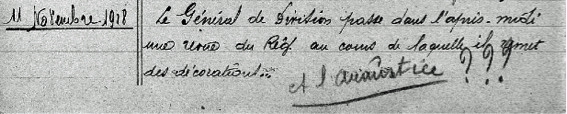 11 Novembre 1918
Le Général de Division passe dans l'après-midi
une revue du Régt au cours de laquelle il remet
des décorations.
et l'armistice ???